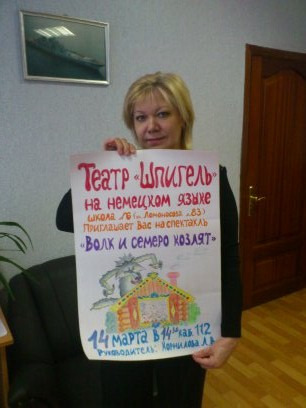 Театр «Шпигель»
на немецком языке
школа №6 (ул. Ломоносова д.83)
Приглашает Вас на спектакль
«Волк и семеро козлят»
14 марта в 14⁰⁰ каб. 112
Руководитель: Корнилова Л.